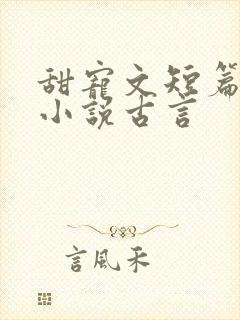 甜寵文短篇
小說古言
言風禾